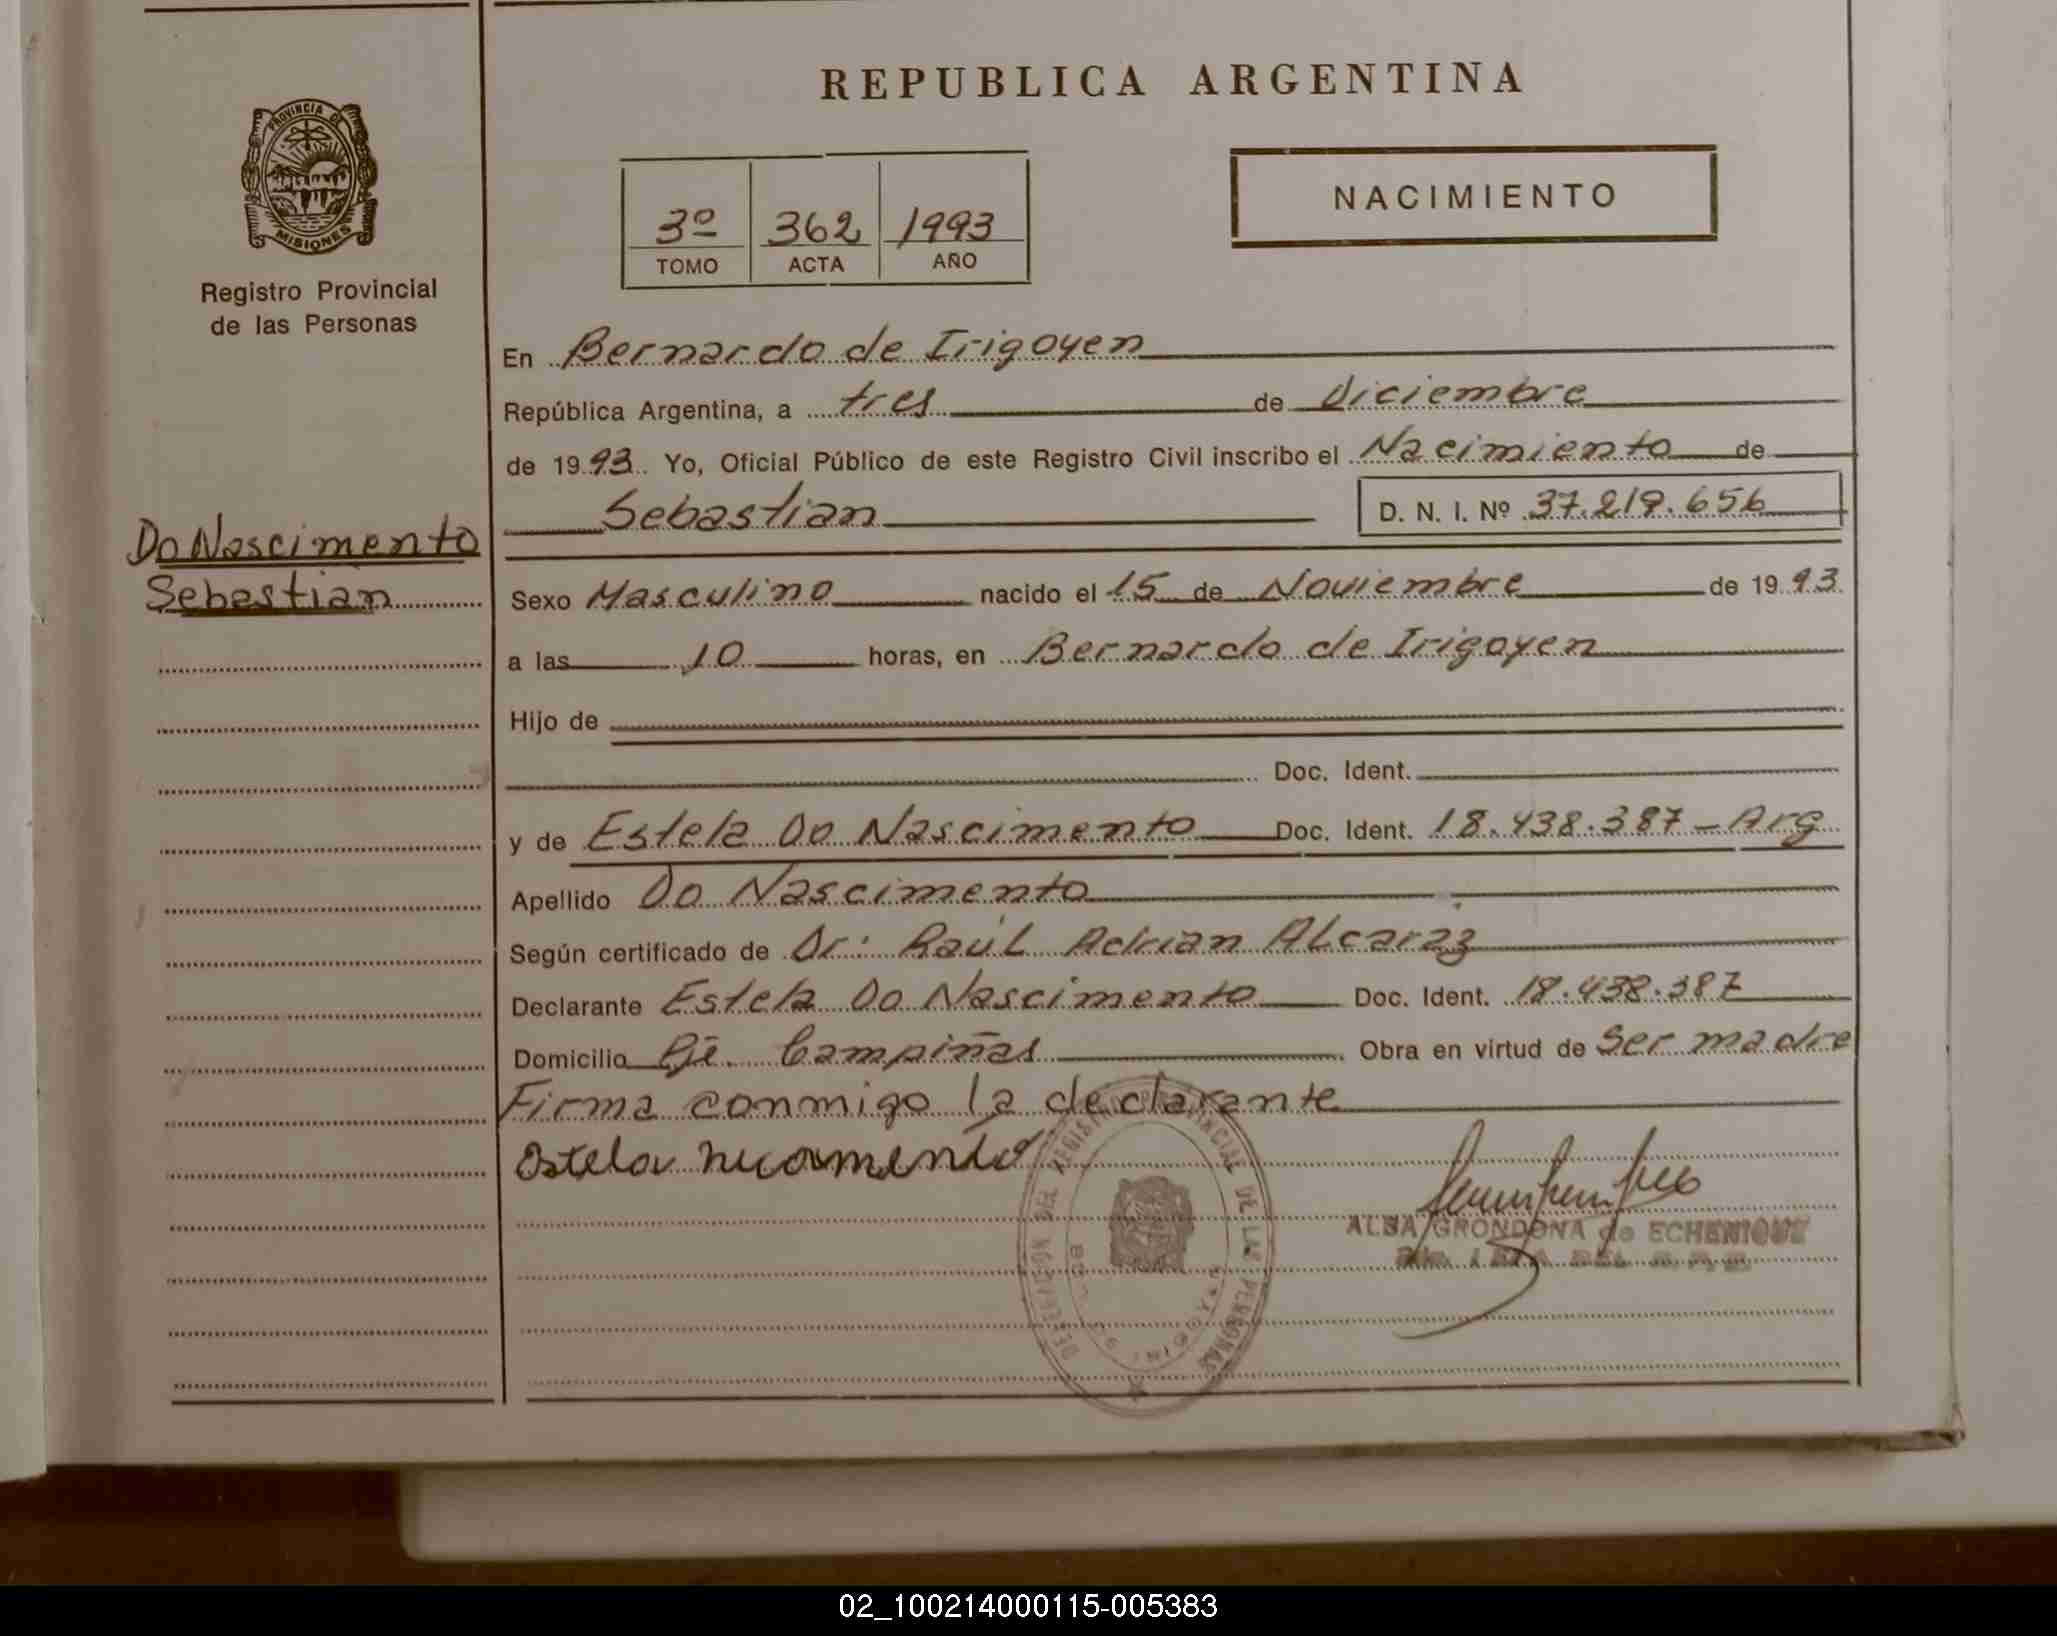 REPUBLICA ARGENTINA
PROVINCIA DE
MISIONES
Registro Provincial
de las Personas
3º 362 1993
TOMO ACTA AÑO
NACIMIENTO
En Bernardo de Irigoyen
República Argentina, a tres de Diciembre
de 1993. Yo, Oficial Público de este Registro Civil inscribo el Nacimiento de
Sebastian D. N. I. Nº 37.219.656
Do Nascimento
Sebastian
Sexo Masculino nacido el 15 de Noviembre de 1993.
a las 10 horas, en Bernardo de Irigoyen
Hijo de
Doc. Ident.
y de Estela Do Nascimento Doc. Ident. 18.438.387 - Arg
Apellido Do Nascimento
Según certificado de Dr: Raúl Adrian Alcaraz
Declarante Estela Do Nascimento Doc. Ident. 18.438.387
Domicilio Pje. Campiñas Obra en virtud de Ser madre
Firma conmigo la declarante
Estela
DELEGACION DEL REGISTRO PROVINCIAL DE LAS PERSONAS
BDO. DE IRIGOYEN
ALBA GRONDONA de ECHENIQUE
02_100214000115-005383